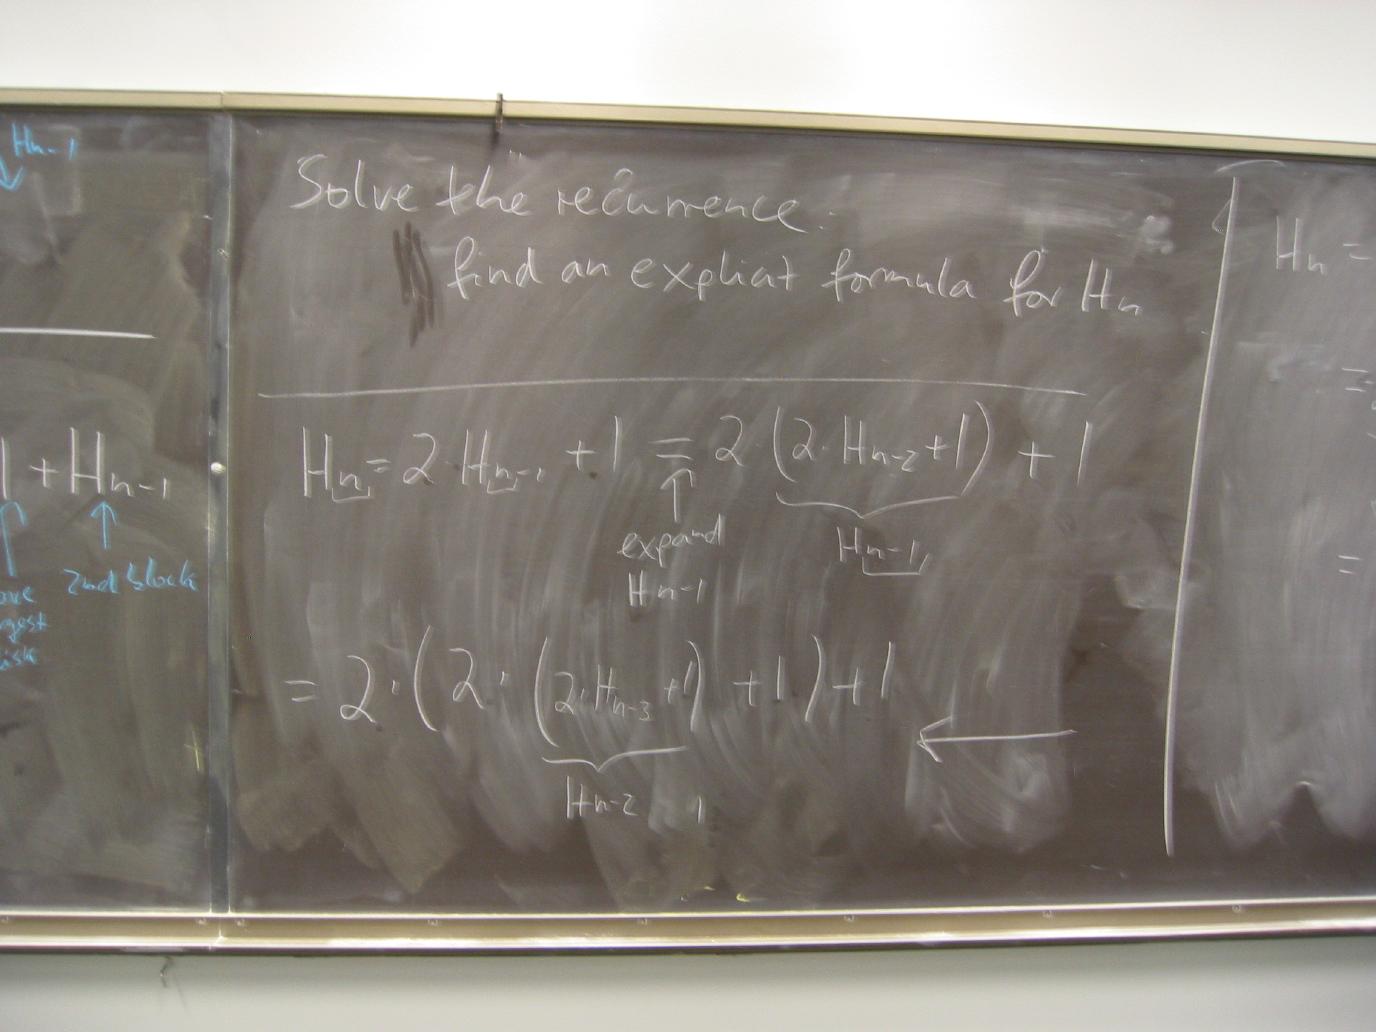 Hn-1
+ Hn-1
2nd block
Solve the recurrence:
find an explicit formula for Hn
Hn = 2·Hn-1 + 1 = 2·(2·Hn-2+1) + 1
expand
Hn-1
Hn-1
= 2·(2·(2·Hn-3+1)+1)+1
Hn-2
Hn =
=
=